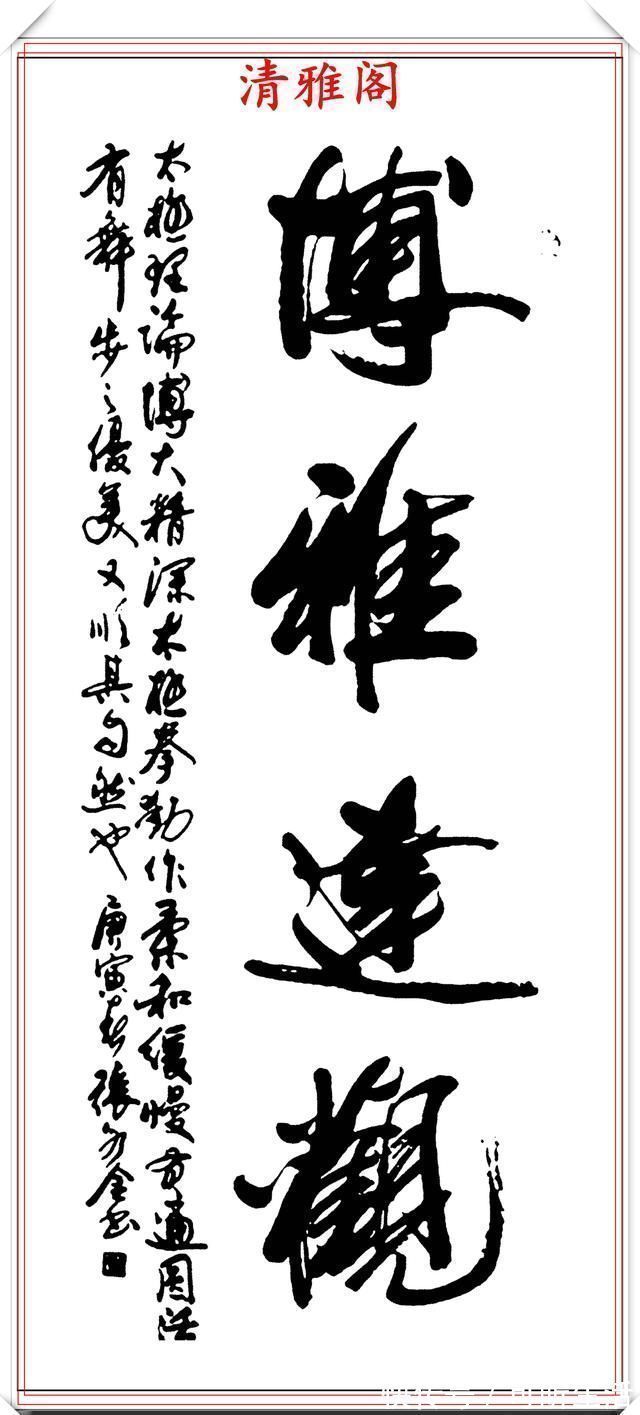 清雅阁
博雅達觀
太極理論博大精深太極拳動作柔和緩慢通圆活
有舞步之優美又順其自然也 庚寅春張金書